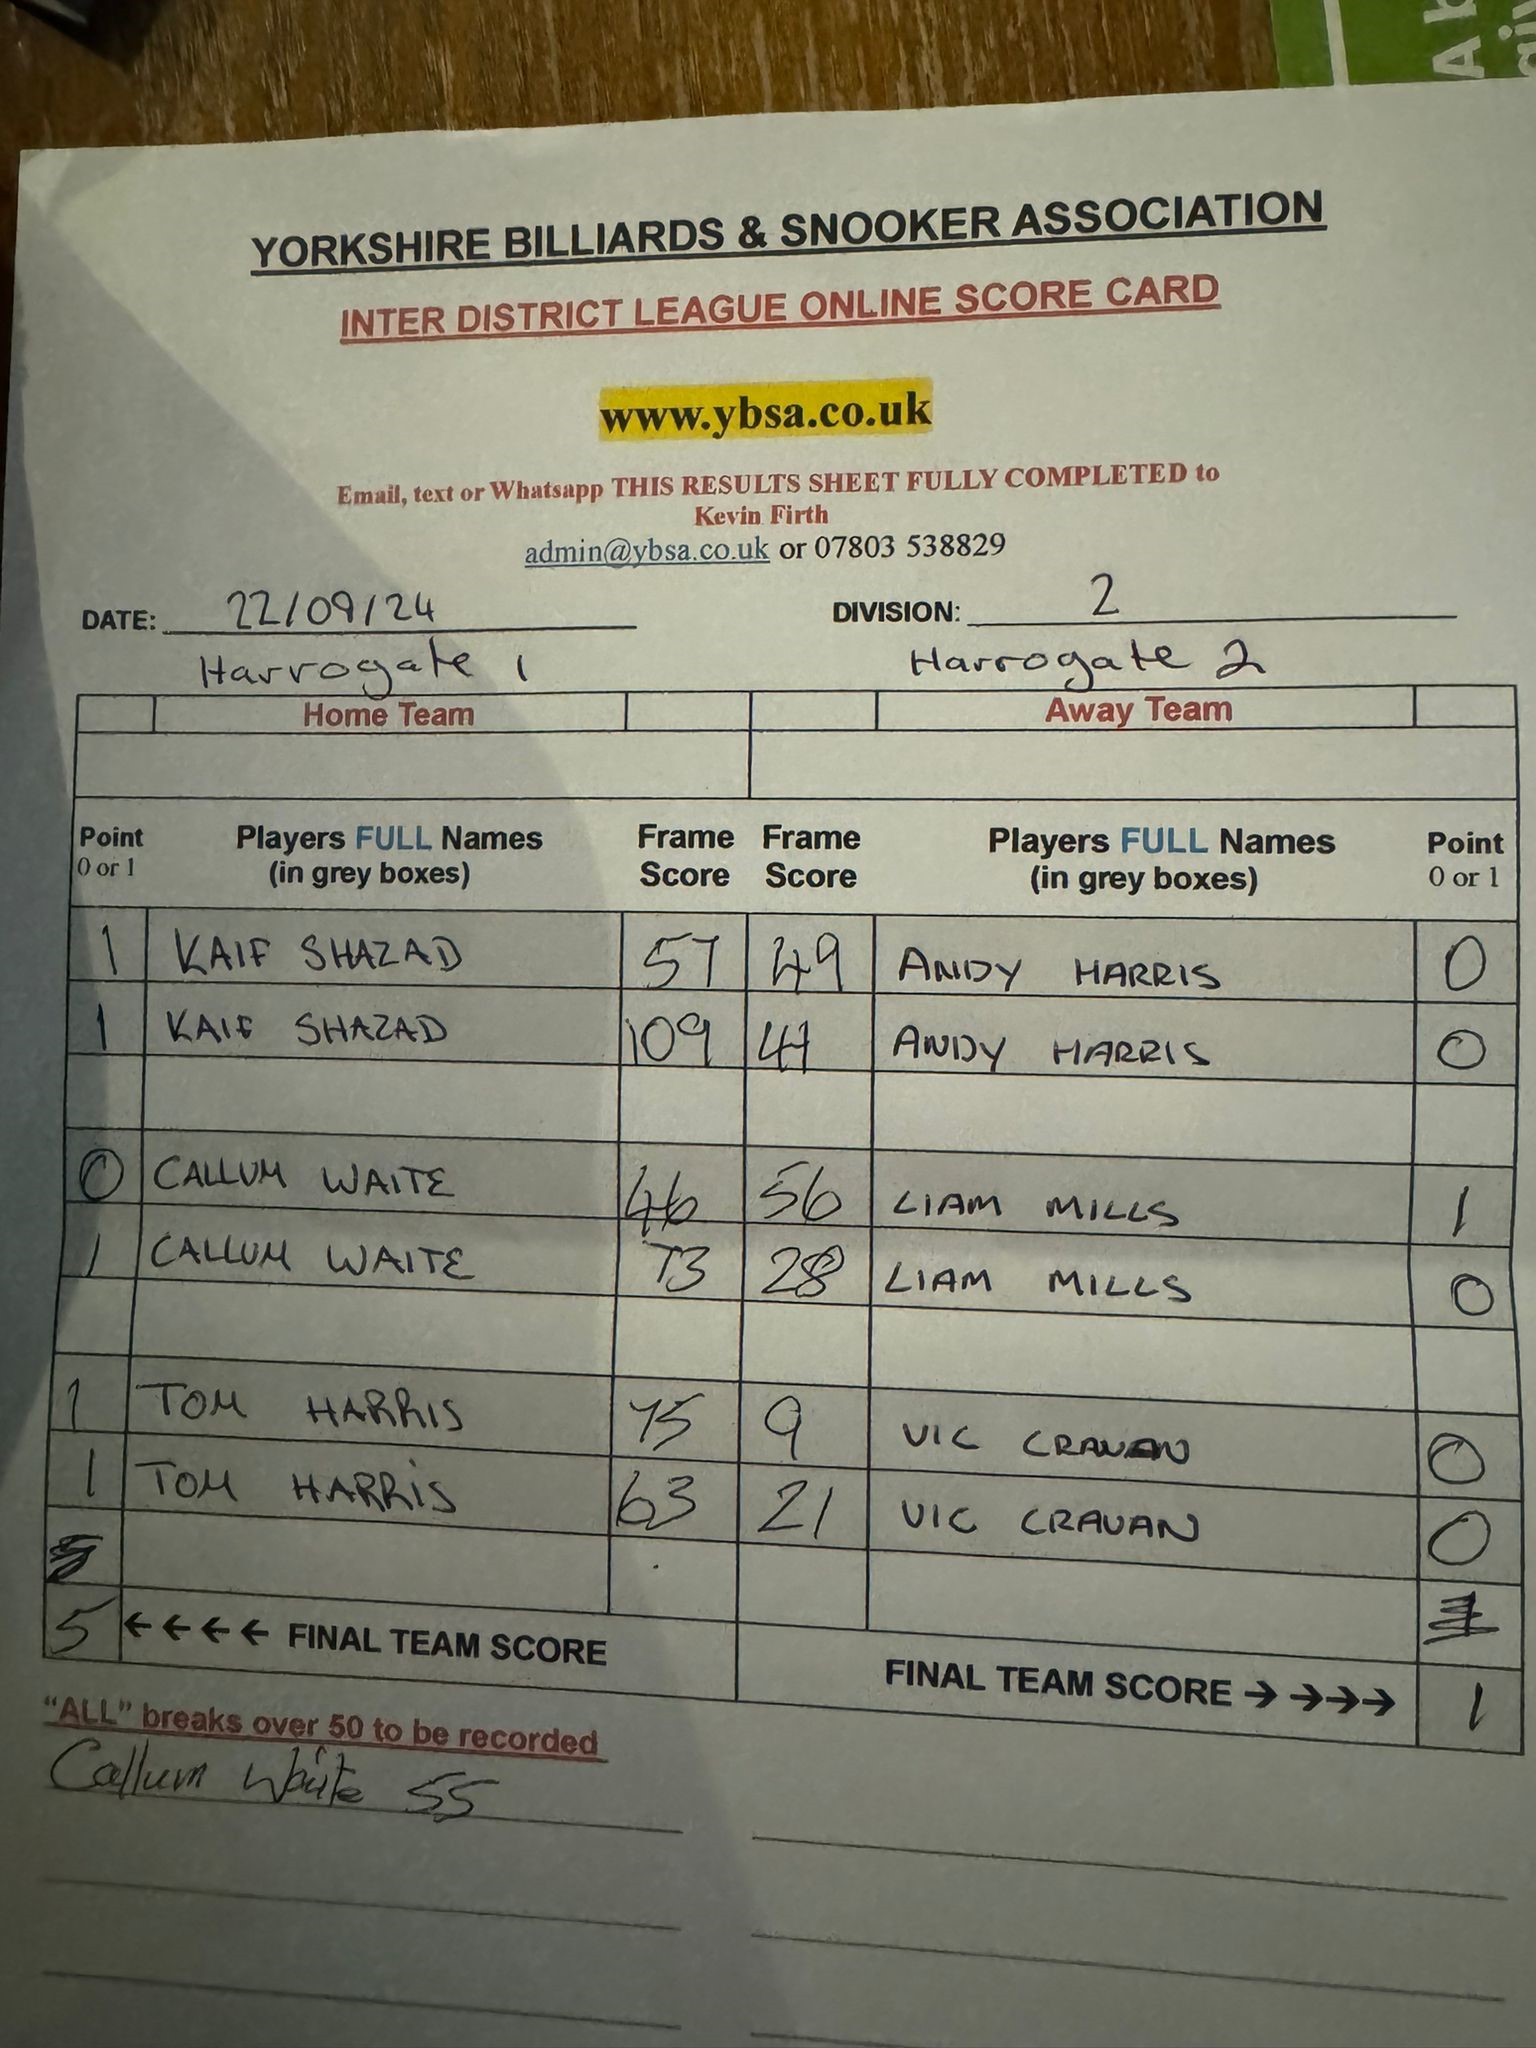 YORKSHIRE BILLIARDS & SNOOKER ASSOCIATION
INTER DISTRICT LEAGUE ONLINE SCORE CARD
www.ybsa.co.uk
Email, text or Whatsapp THIS RESULTS SHEET FULLY COMPLETED to
Kevin Firth
admin@ybsa.co.uk or 07803 538829
DATE: 22/09/24 DIVISION: 2
Harrogate 1 Harrogate 2
Home Team Away Team
Point Players FULL Names Frame Frame Players FULL Names Point
0 or 1 (in grey boxes) Score Score (in grey boxes) 0 or 1
1 KAIF SHAZAD 57 49 ANDY HARRIS 0
1 KAIF SHAZAD 109 41 ANDY HARRIS 0
0 CALLUM WAITE 46 56 LIAM MILLS 1
1 CALLUM WAITE 73 28 LIAM MILLS 0
1 TOM HARRIS 75 9 VIC CRAVAN 0
1 TOM HARRIS 63 21 VIC CRAVAN 0
5 ←←←← FINAL TEAM SCORE FINAL TEAM SCORE →→→→ 1
"ALL" breaks over 50 to be recorded
Callum Waite 55